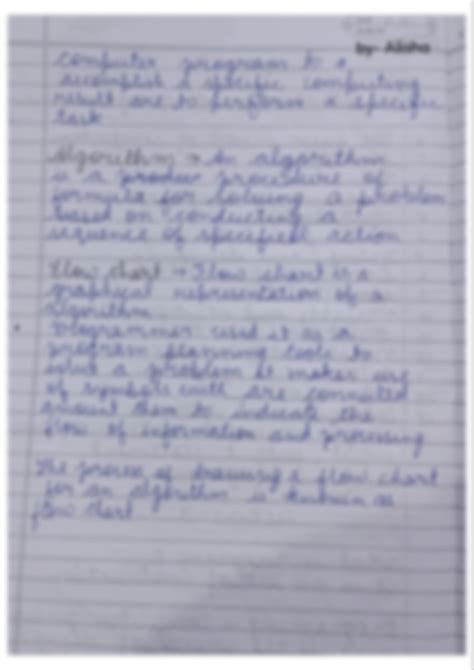 by- Alisha
computer program to a
accomplish a specific computing
result are to perform a specific
task
Algorithm → An algorithm
is a procedure of
formula for solving a problem
based on conducting a
sequence of specified action
Flow chart → Flow chart is a
graphical representation of a
algorithm
Programmer used it as a
program planning tools to
solve a problem it makes use
of symbols are connected
them to indicate the
flow of information and processing
The process of drawing a flow chart
for an algorithm is known as
flow chart